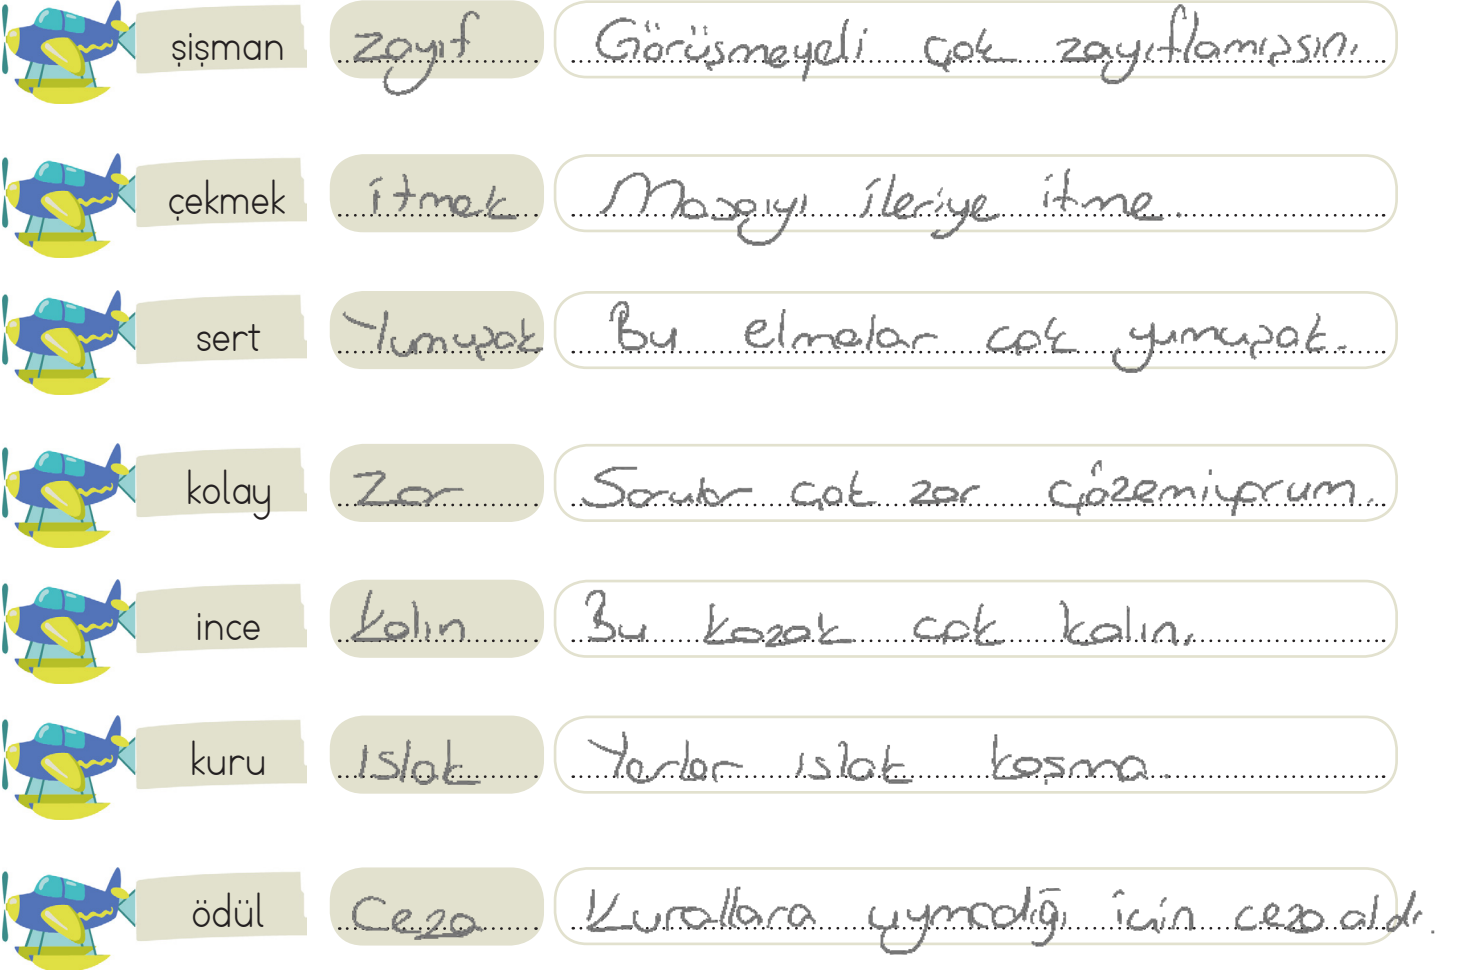 şişman zayıf Görüşmeyeli çok zayıflamışsın.
çekmek itmek Masayı ileriye itme.
sert Yumuşak Bu elmalar çok yumuşak.
kolay Zor Sorular çok zor çözemiyorum.
ince Kalın Bu kazak çok kalın.
kuru ıslak Yerler ıslak koşma.
ödül Ceza Kurallara uymadığı için ceza aldı.